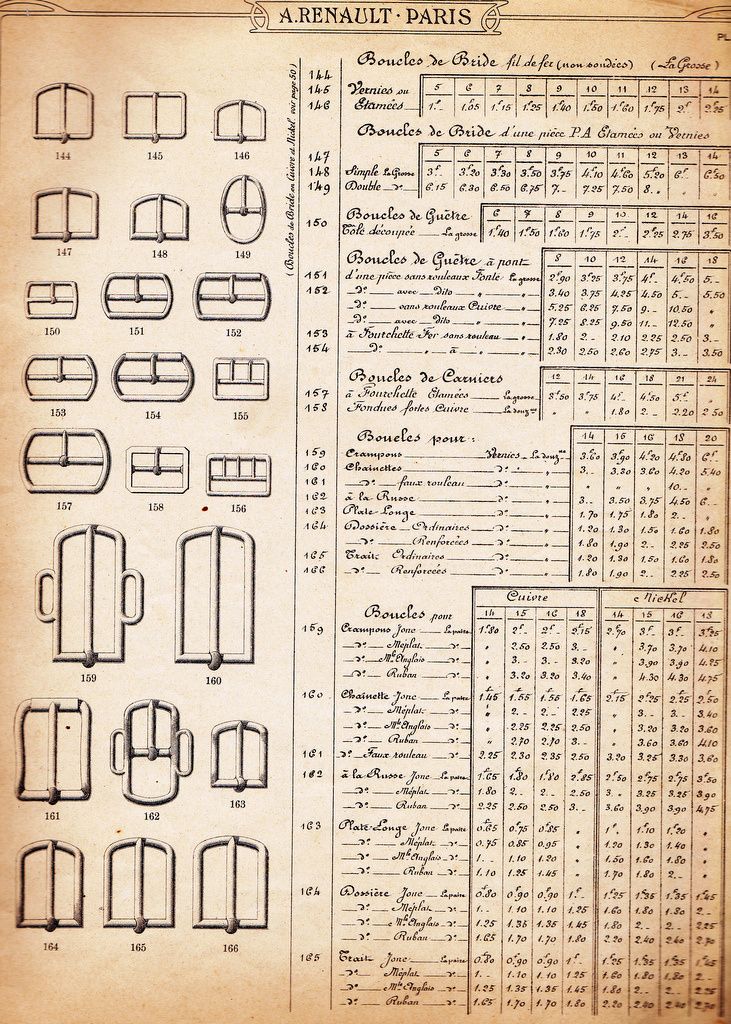 A. RENAULT · PARIS
PL
144
145
146
147
148
149
150
151
152
153
154
155
157
158
156
159
160
161
162
163
164
165
166
(Boucles de Bride en Cuivre et Nickel voir page 50)
Boucles de Bride fil de fer (non soudées) (La Grosse)
144
145 Vernies ou 5 6 7 8 9 10 11 12 13 14
146 Etamées 1f- 1.05 1f15 1f25 1f40 1f50 1f60 1f75 2f- 2f25
Boucles de Bride d'une pièce P.A Etamées ou Vernies
147 5 6 7 8 9 10 11 12 13 14
148 Simple La Grosse 3f- 3f20 3f30 3f50 3f75 4f10 4f60 5f20 6f- 6f50
149 Double d° 6.15 6.30 6.50 6.75 7.- 7.25 7.50 8.- " "
150 Boucles de Guêtre 6 7 8 9 10 12 14 16
Tôle découpée La grosse 1f40 1f50 1f60 1f75 2f- 2f25 2f75 3f50
Boucles de Guêtre à pont 8 10 12 14 16 18
151 d'une pièce sans rouleaux Fonte La grosse 2f90 3f25 3f75 4f- 4f50 5.-
152 d° avec dito " 3.40 3.75 4.25 4.50 5.- 5.50
d° sans rouleaux Cuivre " 5.25 6.25 7.50 9.- 10.50 "
d° avec dito " 7.25 8.25 9.50 11.- 12.50 "
153 à Fourchette Fer sans rouleau " 1.80 2.- 2.10 2.25 2.50 3.-
154 d° à d° " 2.30 2.50 2.60 2.75 3.- 3.50
Boucles de Carniers 12 14 16 18 21 24
157 à Fourchette Etamées La grosse 3f50 3f75 4f- 4f50 5f- "
158 Fondues fortes Cuivre La douzne " " 1.80 2.- 2.20 2.50
Boucles pour : 14 15 16 18 20
159 Crampons Vernies La douzne 3f60 3f90 4f20 4f80 6f-
160 Chainettes d° " 3.- 3.30 3.60 4.20 5.40
161 d° faux rouleau d° " " " " 10.- "
162 à la Russe d° " 3.- 3.50 3.75 4.50 6.-
163 Plate Longe d° " 1.70 1.75 1.80 2.- "
164 Dossière Ordinaires d° " 1.20 1.30 1.50 1.60 1.80
d° Renforcées d° " 1.80 1.90 2.- 2.25 2.50
165 Trait Ordinaires d° " 1.20 1.30 1.50 1.60 1.80
166 d° Renforcées d° " 1.80 1.90 2.- 2.25 2.50
Cuivre Nickel
Boucles pour 14 15 16 18 14 15 16 18
159 Crampons Jonc La paire 1f80 2f- 2f- 2f15 2f70 3f- 3f- 3f25
d° Méplat d° " 2.50 2.50 3.- " 3.70 3.70 4.10
d° Mé Anglais d° " 3.- 3.- 3.20 " 3.90 3.90 4.25
d° Ruban d° " 3.20 3.20 3.40 " 4.30 4.30 4.75
160 Chainette Jonc La paire 1f45 1f55 1f55 1f65 2f15 2f25 2f25 2f50
d° Méplat d° " 2.- 2.- 2.25 " 3.- 3.- 3.40
d° Mé Anglais d° " 2.25 2.25 2.50 " 3.20 3.20 3.60
d° Ruban d° " 2.70 2.70 3.- " 3.60 3.60 4.10
161 d° Faux rouleau d° 2.25 2.30 2.35 2.50 3.20 3.25 3.30 3.60
162 à la Russe Jonc La paire 1f65 1f80 1f80 2f25 2f50 2f75 2f75 3f50
d° Méplat d° 1.80 2.- 2.- 2.50 3.- 3.25 3.25 3.90
d° Ruban d° 2.25 2.50 2.50 3.- 3.60 3.90 3.90 4.75
163 Plate-Longe Jonc La paire 0f65 0f75 0f85 " 1f- 1f10 1f20 "
d° Méplat d° 0.75 0.85 0.95 " 1.20 1.30 1.40 "
d° Mé Anglais d° 1.- 1.10 1.20 " 1.50 1.60 1.80 "
d° Ruban d° 1.10 1.25 1.45 " 1.70 1.80 2.- "
164 Dossière Jonc La paire 0f80 0f90 0f90 1f- 1f25 1f35 1f35 1f45
d° Méplat d° 1.- 1.10 1.10 1.25 1.60 1.80 1.80 2.-
d° Mé Anglais d° 1.25 1.35 1.35 1.45 1.80 2.- 2.- 2.25
d° Ruban d° 1.65 1.70 1.70 1.80 2.20 2.40 2.40 2.70
165 Trait Jonc La paire 0f80 0f90 0f90 1f- 1f25 1f35 1f35 1f45
d° Méplat d° 1.- 1.10 1.10 1.25 1.60 1.80 1.80 2.-
d° Mé Anglais d° 1.25 1.35 1.35 1.45 1.80 2.- 2.- 2.25
d° Ruban d° 1.65 1.70 1.70 1.80 2.20 2.40 2.40 2.70